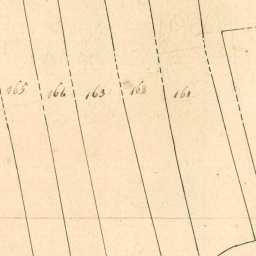 165 166 163 162 161